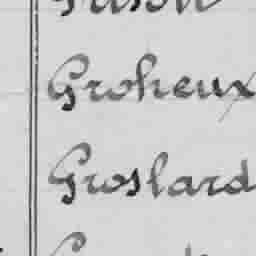 Groheux
Groslard